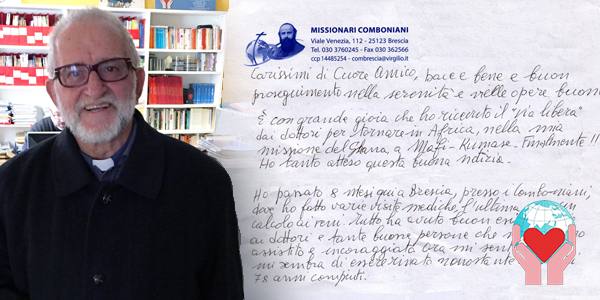 MISSIONARI COMBONIANI
Viale Venezia, 112 - 25123 Brescia
Tel. 030 3760245 - Fax 030 362566
ccp 14485254 - combrescia@virgilio.it
Carissimi di Cuore Amico, pace e bene e buon
proseguimento nella serenità e nelle opere buone
È con grande gioia che ho ricevuto il "via libera"
dai dottori per tornare in Africa, nella mia
missione del Ghana, a Mafi-Kumase. Finalmente!!
Ho tanto atteso questa buona notizia.
Ho passato 8 mesi qui a Brescia, presso i comboniani,
dove ho fatto varie visite mediche, l'ultima un
calcolo ai reni. Tutto ha avuto buon
ai dottori e tante buone persone che
assistito e incoraggiato ora mi
mi sembra di essere rinato nonostante
78 anni compiuti.